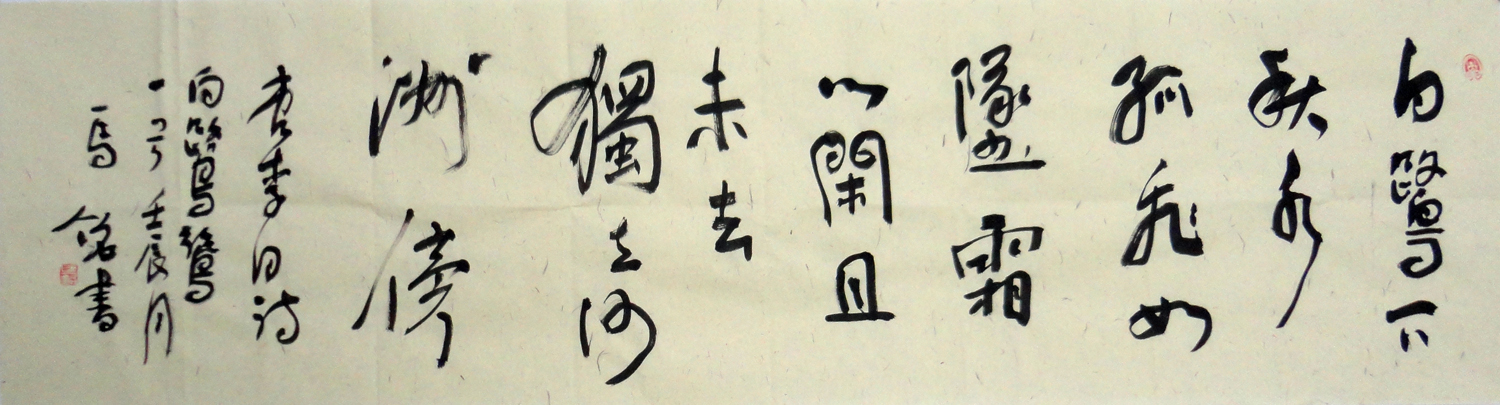 白鷺下
秋水
孤飛如
墜霜
心閑且
未去
獨立沙
洲傍
李白诗
白鷺鷥
壬辰月
馬銘書